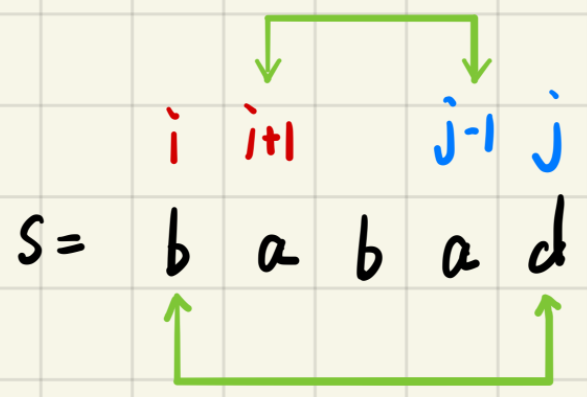 i i+1 j-1 j
s= b a b a d